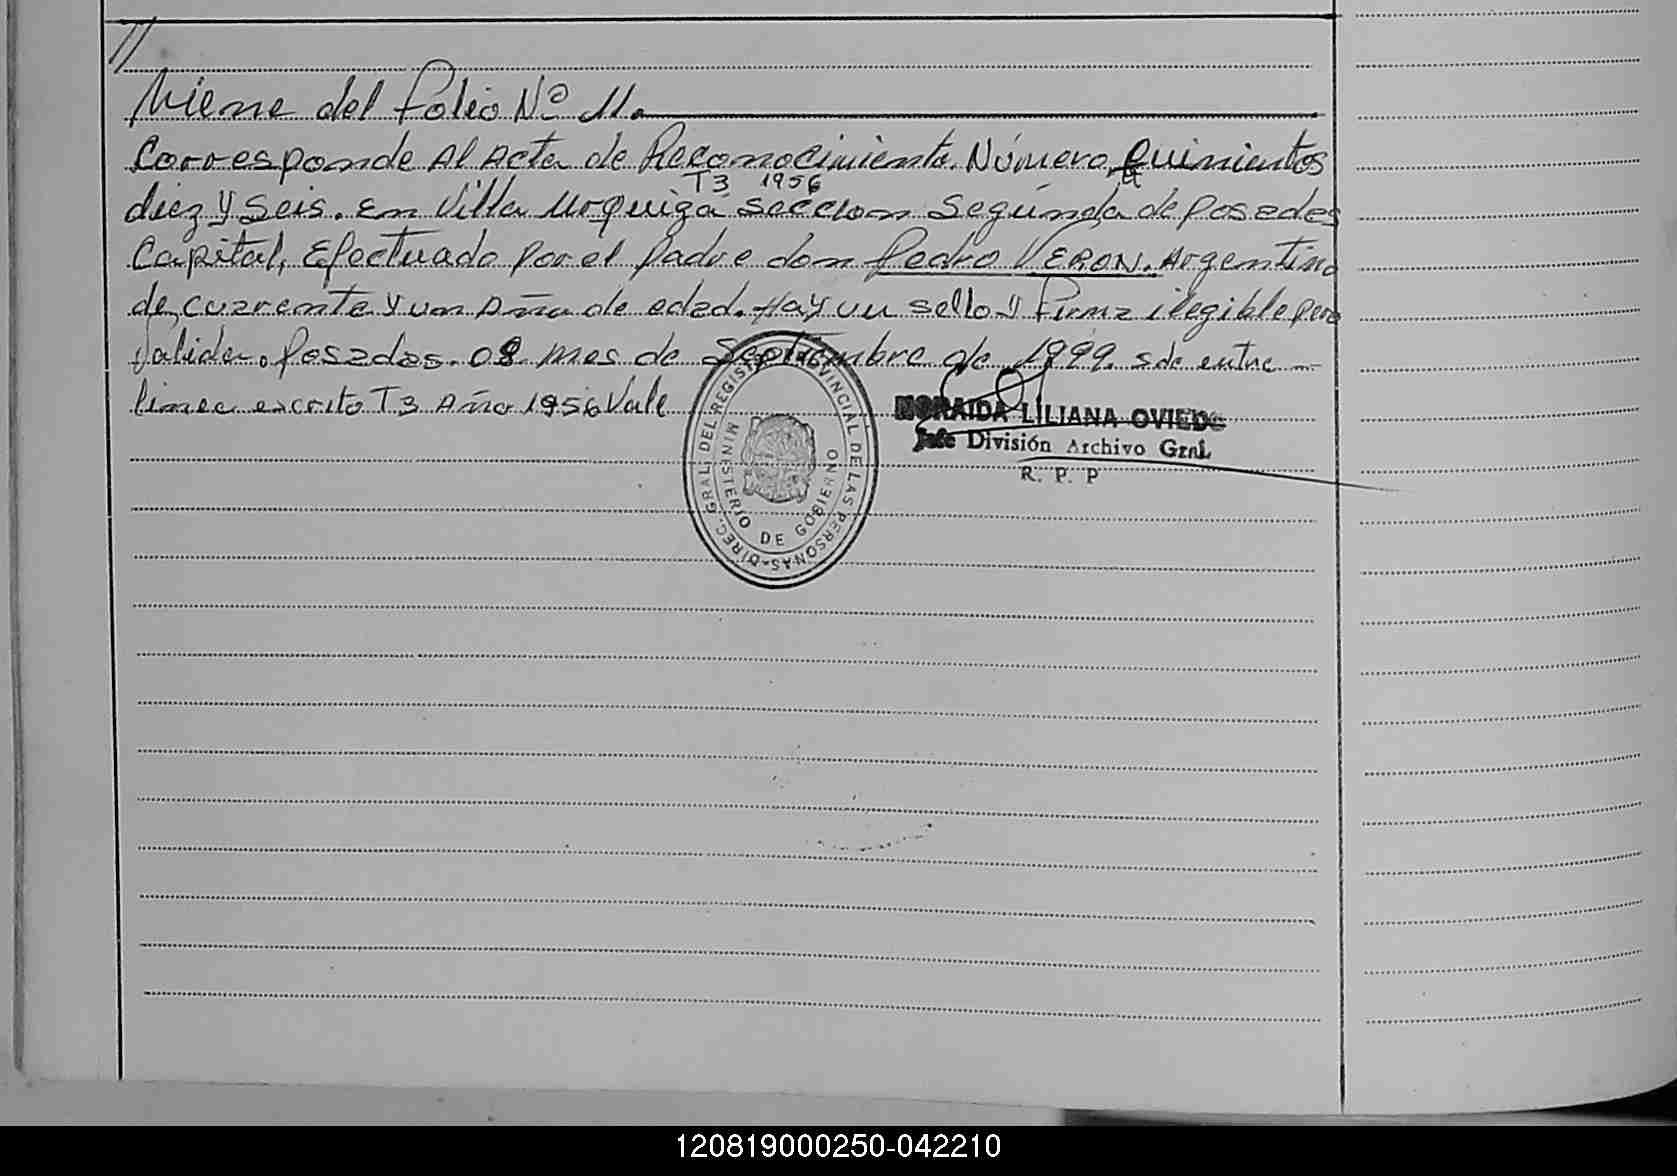 //
Viene del folio Nº 11.
Corresponde Al Acta de Reconocimiento. Número Quinientos
T3 1956
diez y Seis. En Villa Urquiza sección Segunda de Posadas
Capital, Efectuado por el padre don Pedro VERON. Argentino
de cuarenta y un Años de edad. Hay un sello y Firma ilegible para
Valider. Posadas. 08 mes de Septiembre de 1999. sdo entre -
linea escrito T3 Año 1956 Vale
DIREC. GRAL. DEL REGISTRO PROVINCIAL DE LAS PERSONAS
MINISTERIO DE GOBIERNO
NORAIDA LILIANA OVIEDO
Jefe División Archivo Gral.
R. P. P
120819000250-042210